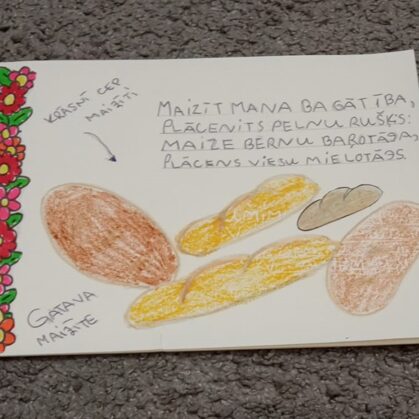 KRĀSNĪ CEP
MAIZĪTI
MAIZĪT MANA BAGĀTĪBA,
PLĀCENITS PELNU RUŠĶIS:
MAIZE BĒRNU BAROTĀJS,
PLĀCENS VIESU MIELOTĀJS.
GATAVA
MAIZĪTE